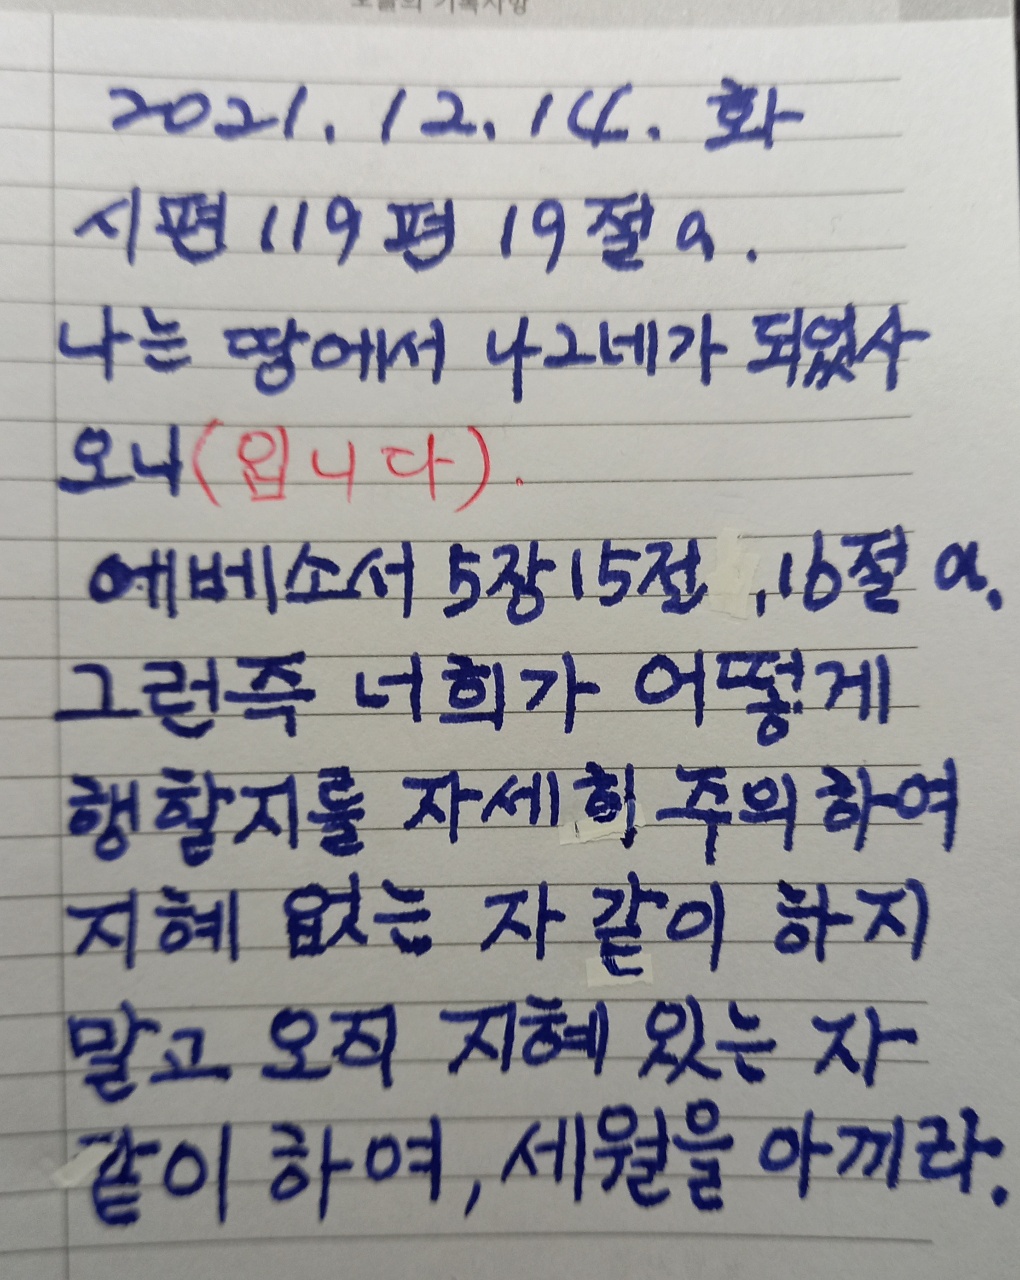 2021. 12. 14. 화
시편 119편 19절a.
나는 땅에서 나그네가 되었사
오니(입니다).
에베소서 5장15절,16절 a.
그런즉 너희가 어떻게
행할지를 자세히 주의하여
지혜 없는 자 같이 하지
말고 오직 지혜 있는 자
같이 하여, 세월을 아끼라.